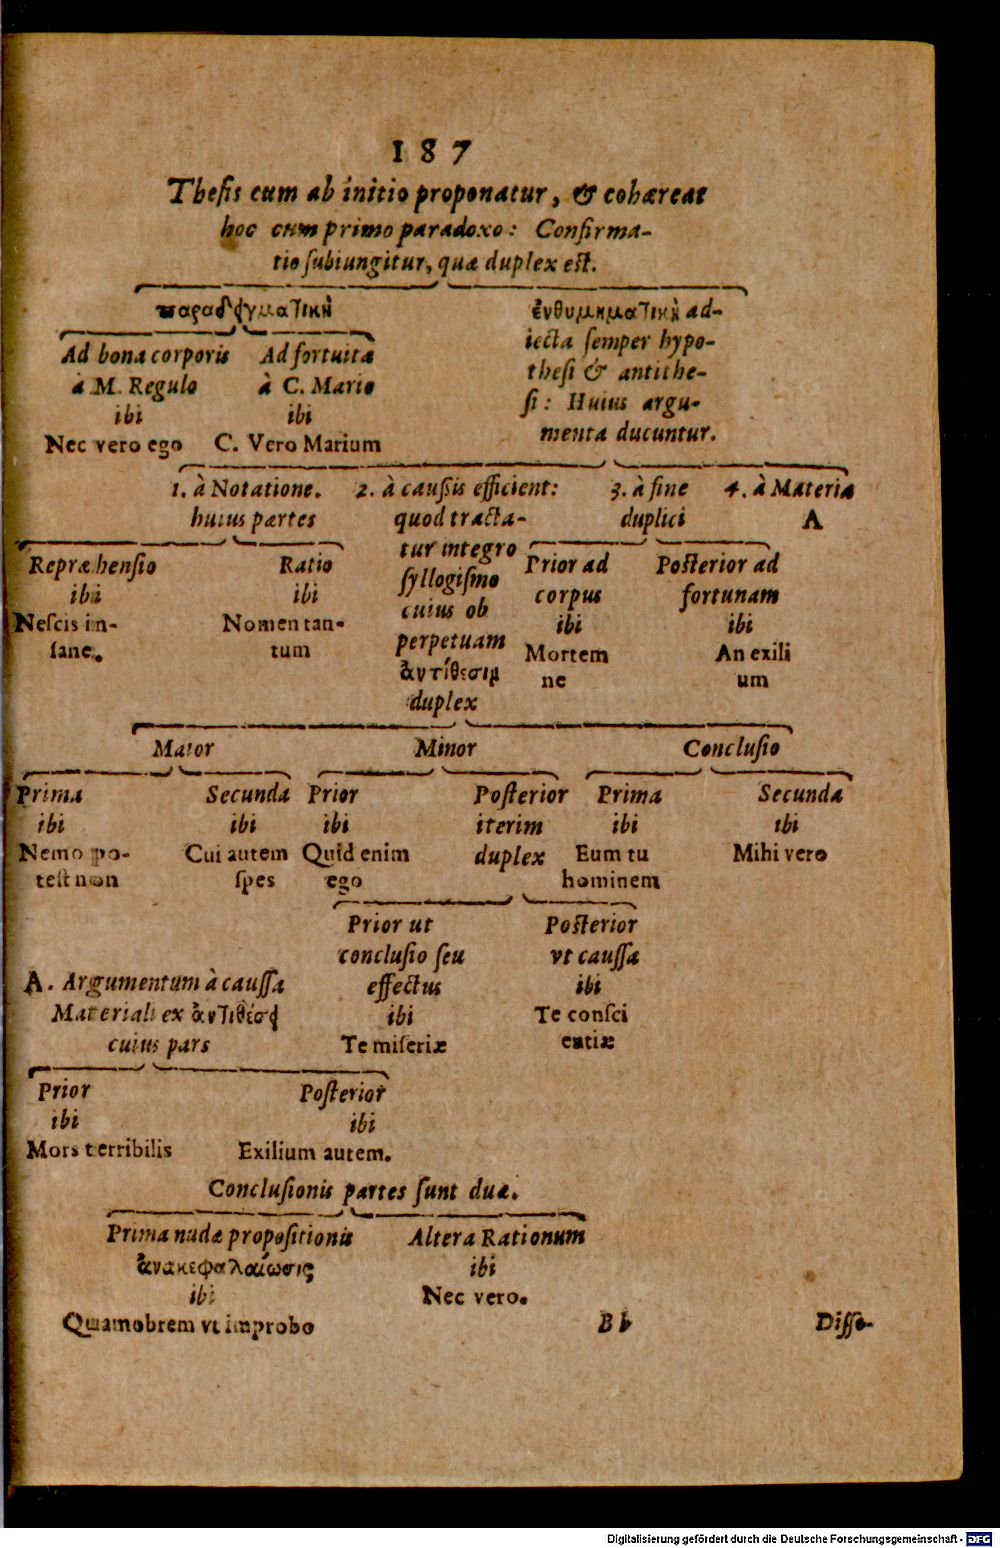 187
Thesis cum ab initio proponatur, & cohæreat
hoc cum primo paradoxo: Confirma-
tio subiungitur, quæ duplex est.
παραδειγματικὴ
Ad bona corporis
à M. Regulo
ibi
Nec vero ego
Ad fortuita
à C. Mario
ibi
C. Vero Marium
ἐνθυμηματικὴ ad-
iecta semper hypo-
thesi & antithe-
si: Huius argu-
menta ducuntur.
1. à Notatione.
huius partes
Repræhensio
ibi
Nescis in-
sane.
Ratio
ibi
Nomen tan-
tum
2. à caussis efficient:
quod tracta-
tur integro
syllogismo
cuius ob
perpetuam
ἀντίθεσιμ
duplex
3. à fine
duplici
Prior ad
corpus
ibi
Mortem
ne
Posterior ad
fortunam
ibi
An exili
um
4. à Materia
A
Maior
Prima
ibi
Nemo po-
test non
Secunda
ibi
Cui autem
spes
Minor
Prior
ibi
Quid enim
ego
Posterior
iterim
duplex
Conclusio
Prima
ibi
Eum tu
hominem
Secunda
ibi
Mihi vero
Prior ut
conclusio seu
effectus
ibi
Te miseriæ
Posterior
vt caussa
ibi
Te consci
entiæ
A. Argumentum à caussa
Materiali ex ἀντιθέσει
cuius pars
Prior
ibi
Mors terribilis
Posterior
ibi
Exilium autem.
Conclusionis partes sunt duæ.
Prima nudæ propositionis
ἀνακεφαλαίωσις
ibi
Quamobrem vt improbo
Altera Rationum
ibi
Nec vero.
Bb
Disse-
Digitalisierung gefördert durch die Deutsche Forschungsgemeinschaft - DFG